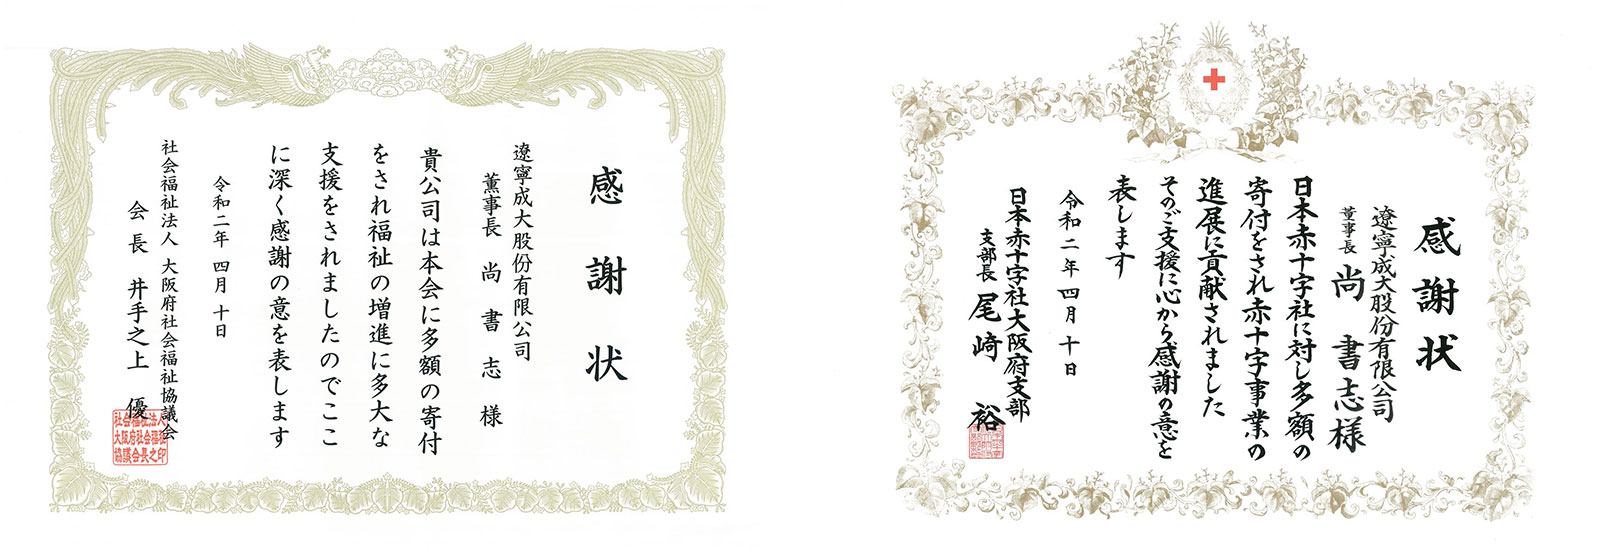 感謝状
遼寧成大股份有限公司
薫事長 尚書志 様
貴公司は本会に多額の寄付
をされ福祉の増進に多大な
支援をされましたのでここ
に深く感謝の意を表します
令和二年四月十日
社会福祉法人 大阪府社会福祉協議会
会長 井手之上 優
社会福祉法人
大阪府社会福祉
協議会会長之印
感謝状
遼寧成大股份有限公司
董事長 尚書志様
日本赤十字社に対し多額の
寄付をされ赤十字事業の
進展に貢献されました
そのご支援に心から感謝の意を
表します
令和二年四月十日
日本赤十字社大阪府支部
支部長 尾崎 裕